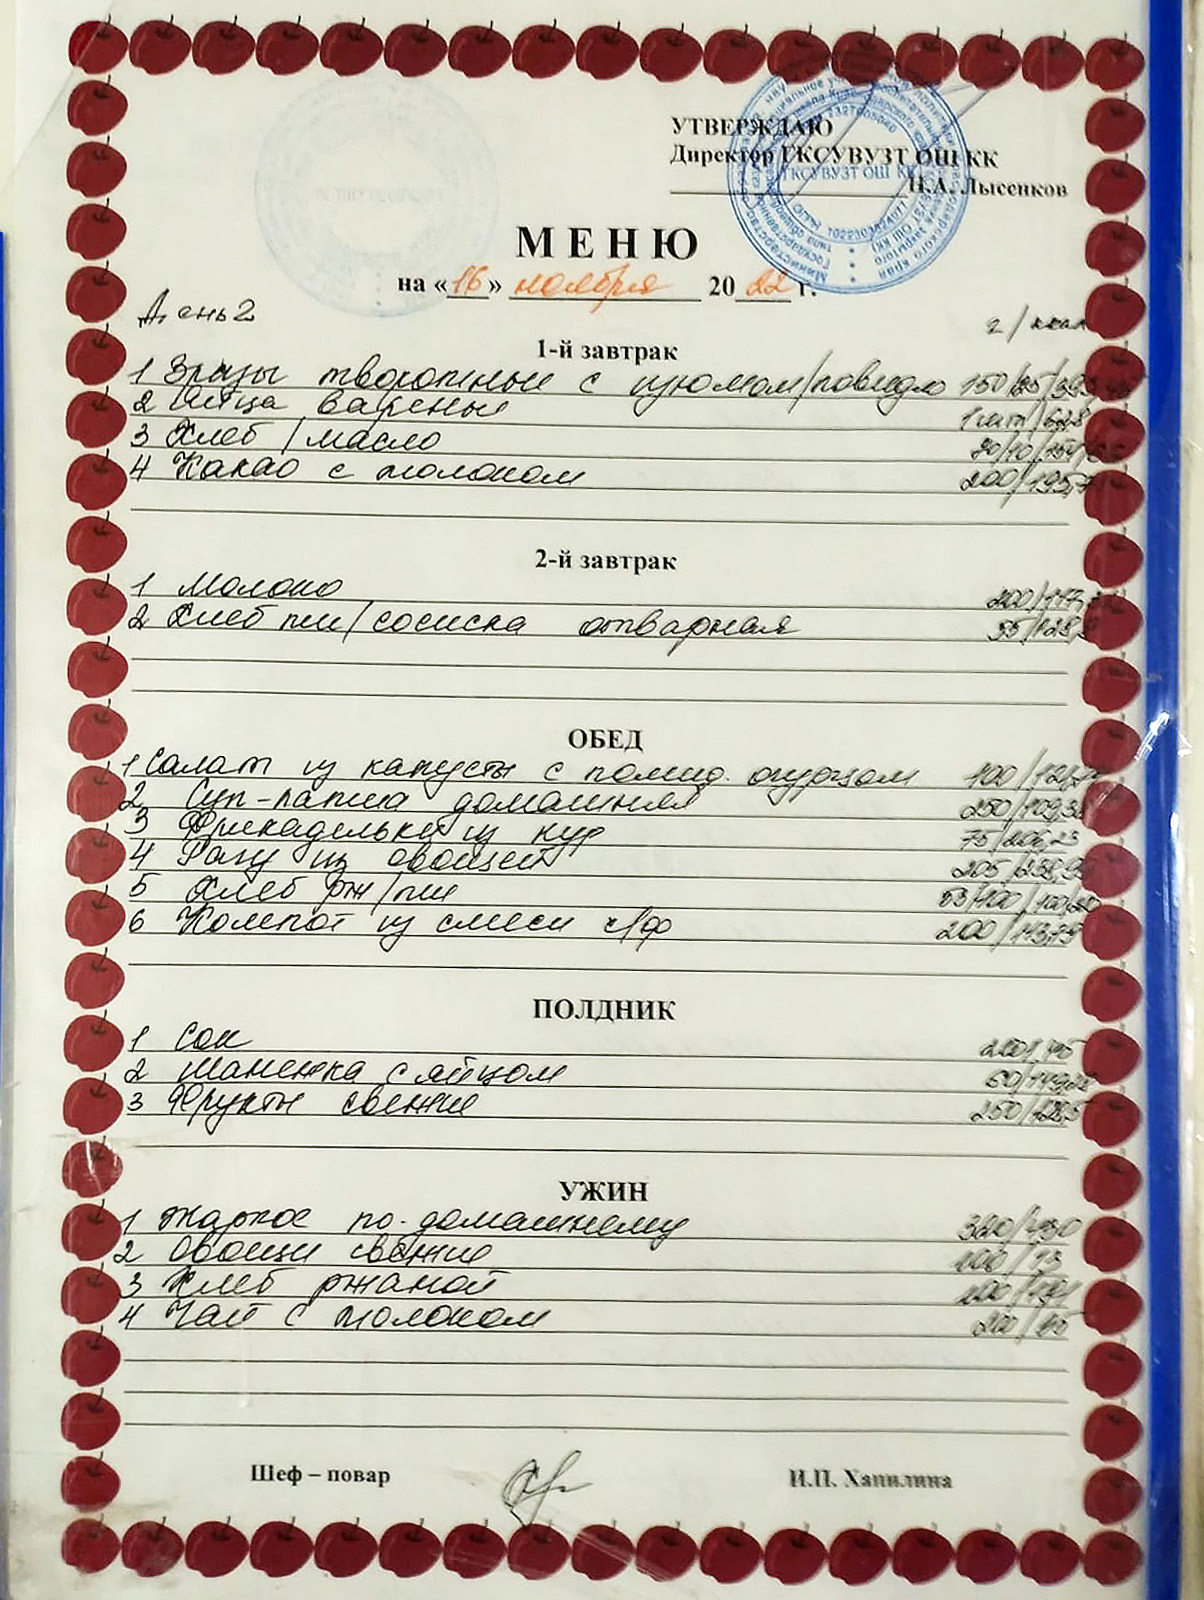 УТВЕРЖДАЮ
Директор ГКСУВУЗТ ОШ КК
Н.А. Лысенков
ГКСУВУЗТ ОШ КК
МЕНЮ
на «16» ноября 2022 г.
День 2 г/ккал
1-й завтрак
1 Зразы творожные с изюмом/повидло 150/25/
2 Яйца вареные 1 шт/62,8
3 Хлеб/масло
4 Какао с молоком 200/195,7
2-й завтрак
1 Молоко 200/117,
2 Хлеб пш/сосиска отварная 55/128,
ОБЕД
1 Салат из капусты с помид. огурцом 100/
2 Суп-лапша домашняя 250/109,38
3 Фрикадельки из кур 75/206,23
4 Рагу из овощей 205/
5 Хлеб рж/пш
6 Компот из смеси с/ф 200/113,79
ПОЛДНИК
1 Сок
2 Маненка с яйцом 60/
3 Фрукты свежие 250/
УЖИН
1 Жаркое по-домашнему
2 Овощи свежие 100/13
3 Хлеб ржаной
4 Чай с молоком 200/
Шеф – повар И.П. Хапилина